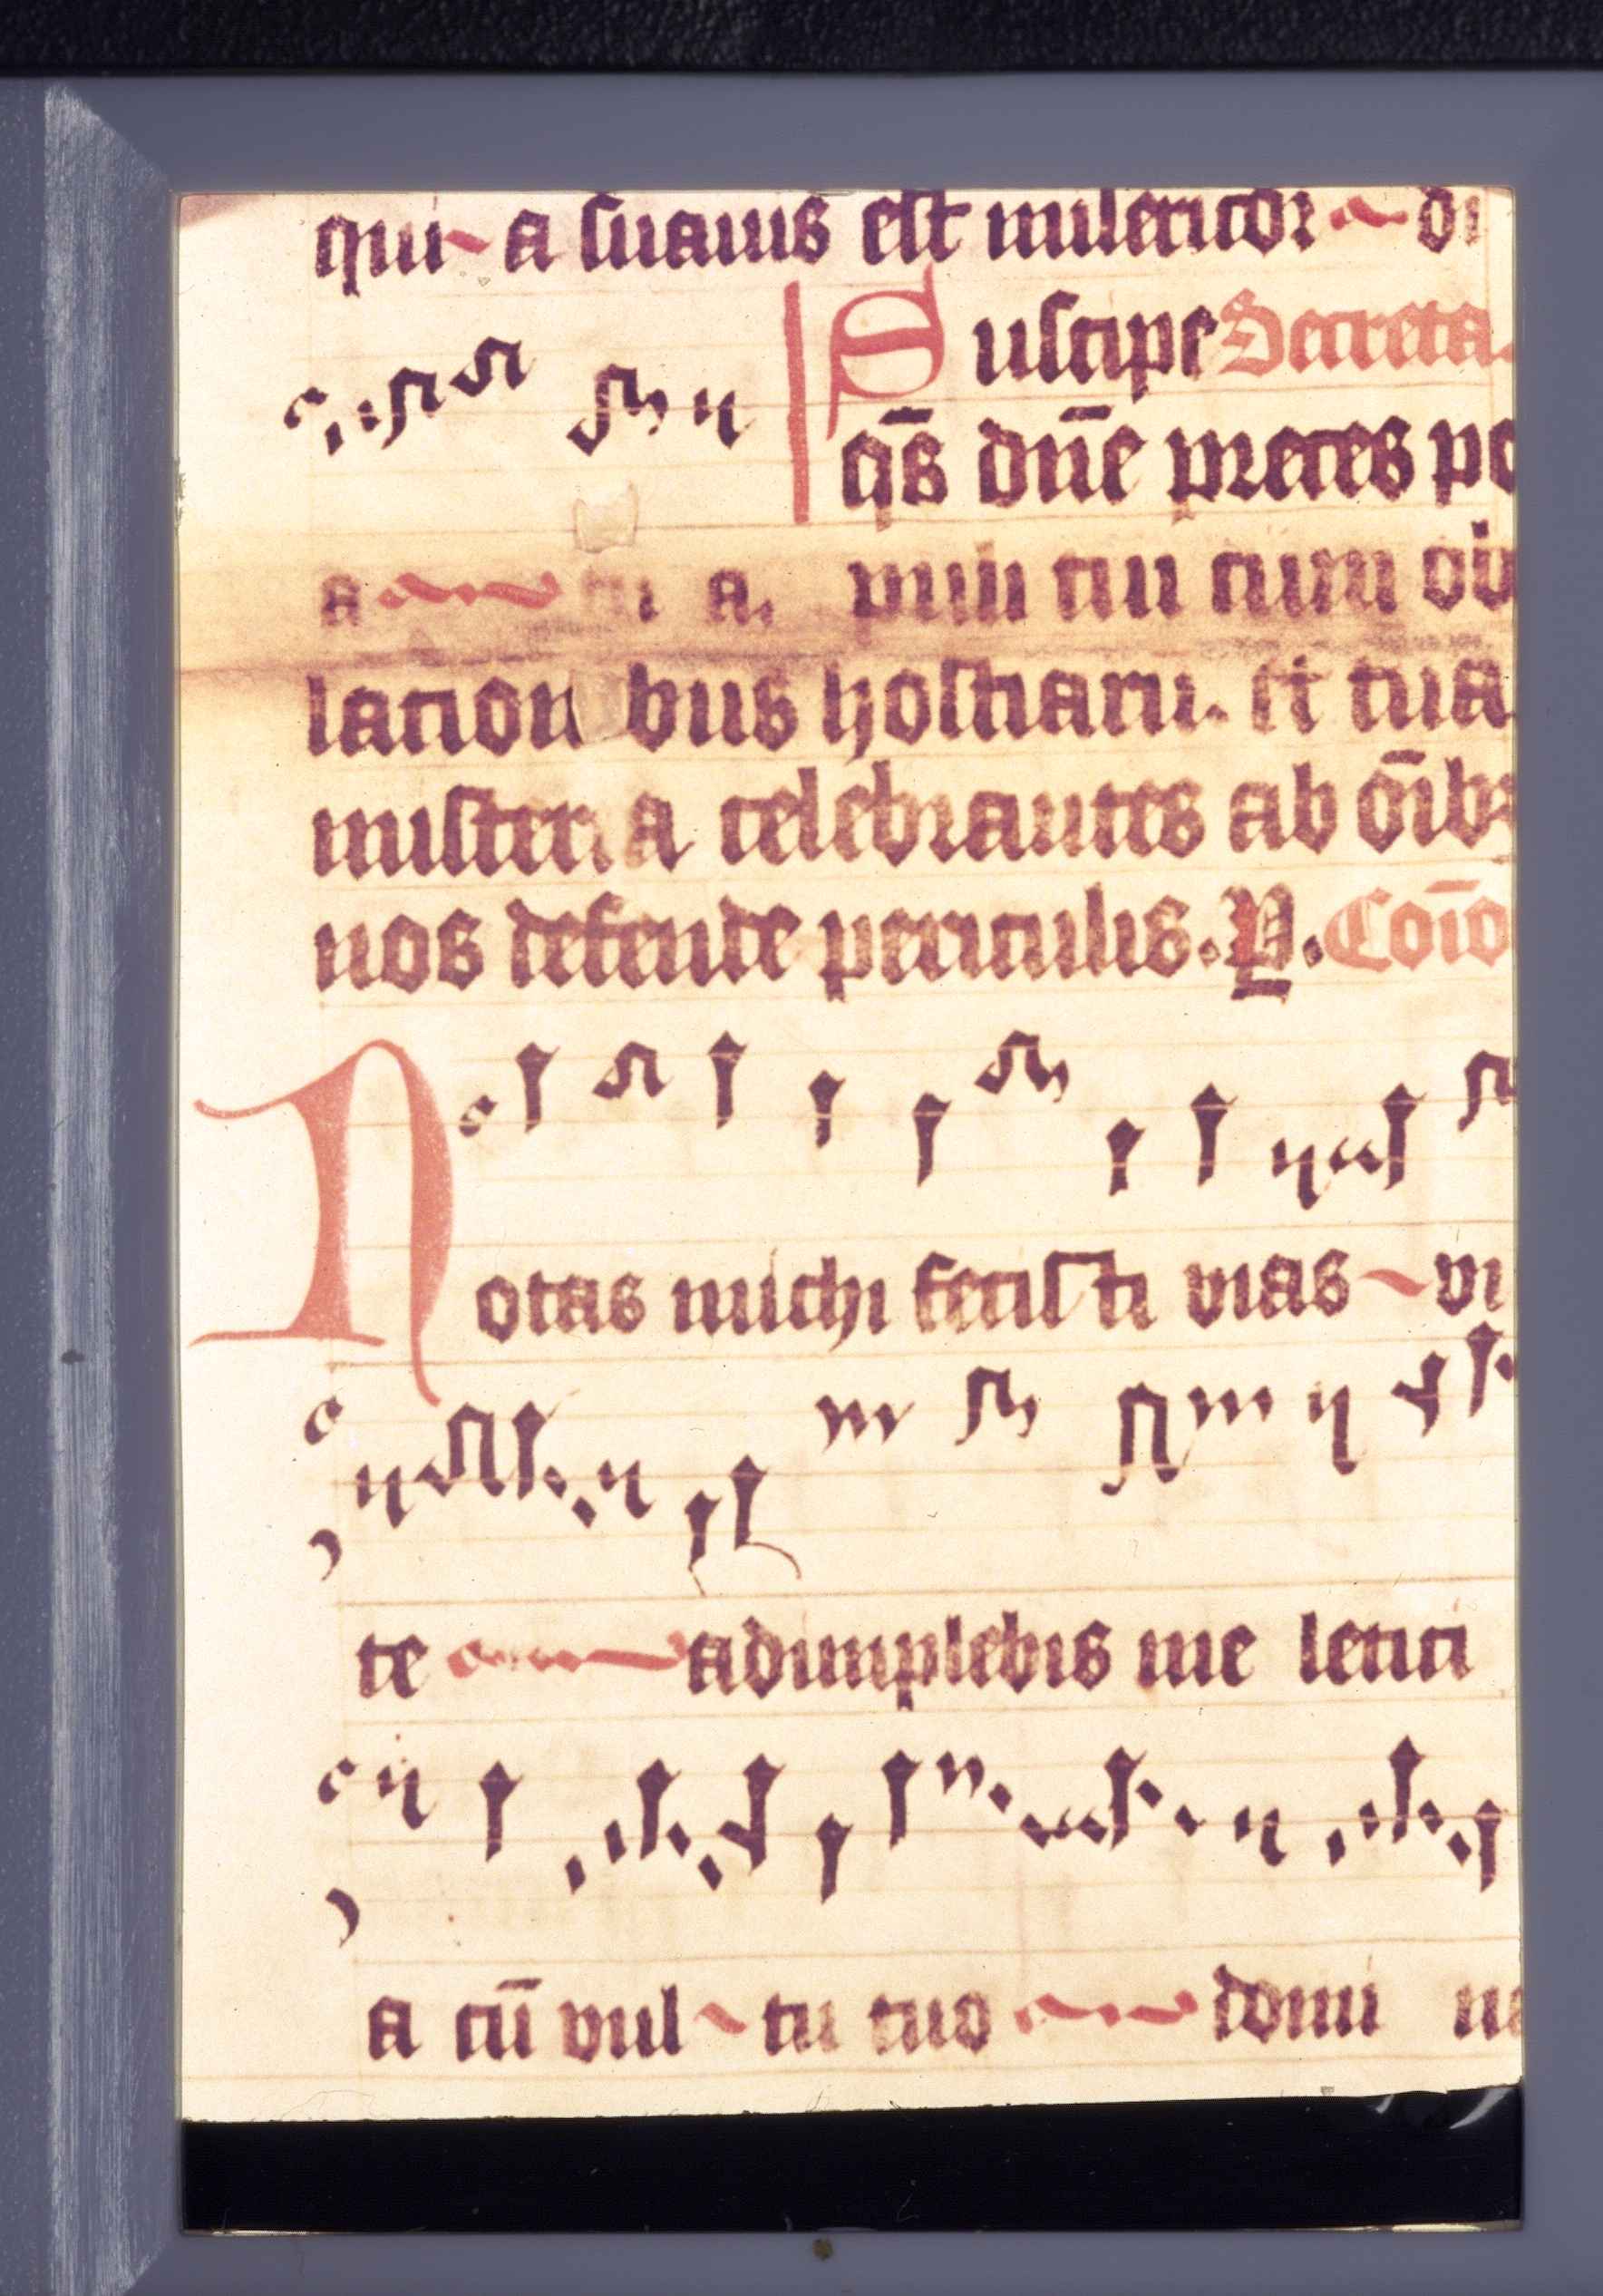 qui a suauis est misericor di
Suscipe Secreta.
q̄s dn̄e preces po
a tu a. puli tui cum ob
lation bus hostiaru. et tua
misteria celebrantes ab oīb
nos defende periculis. P. Coīo
Notas michi fecisti uias ui
te adimplebis me letici
a cū uul tu tuo domi n